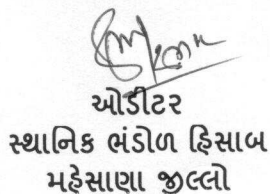 ઓડીટર
સ્થાનિક ભંડોળ હિસાબ
મહેસાણા જીલ્લો